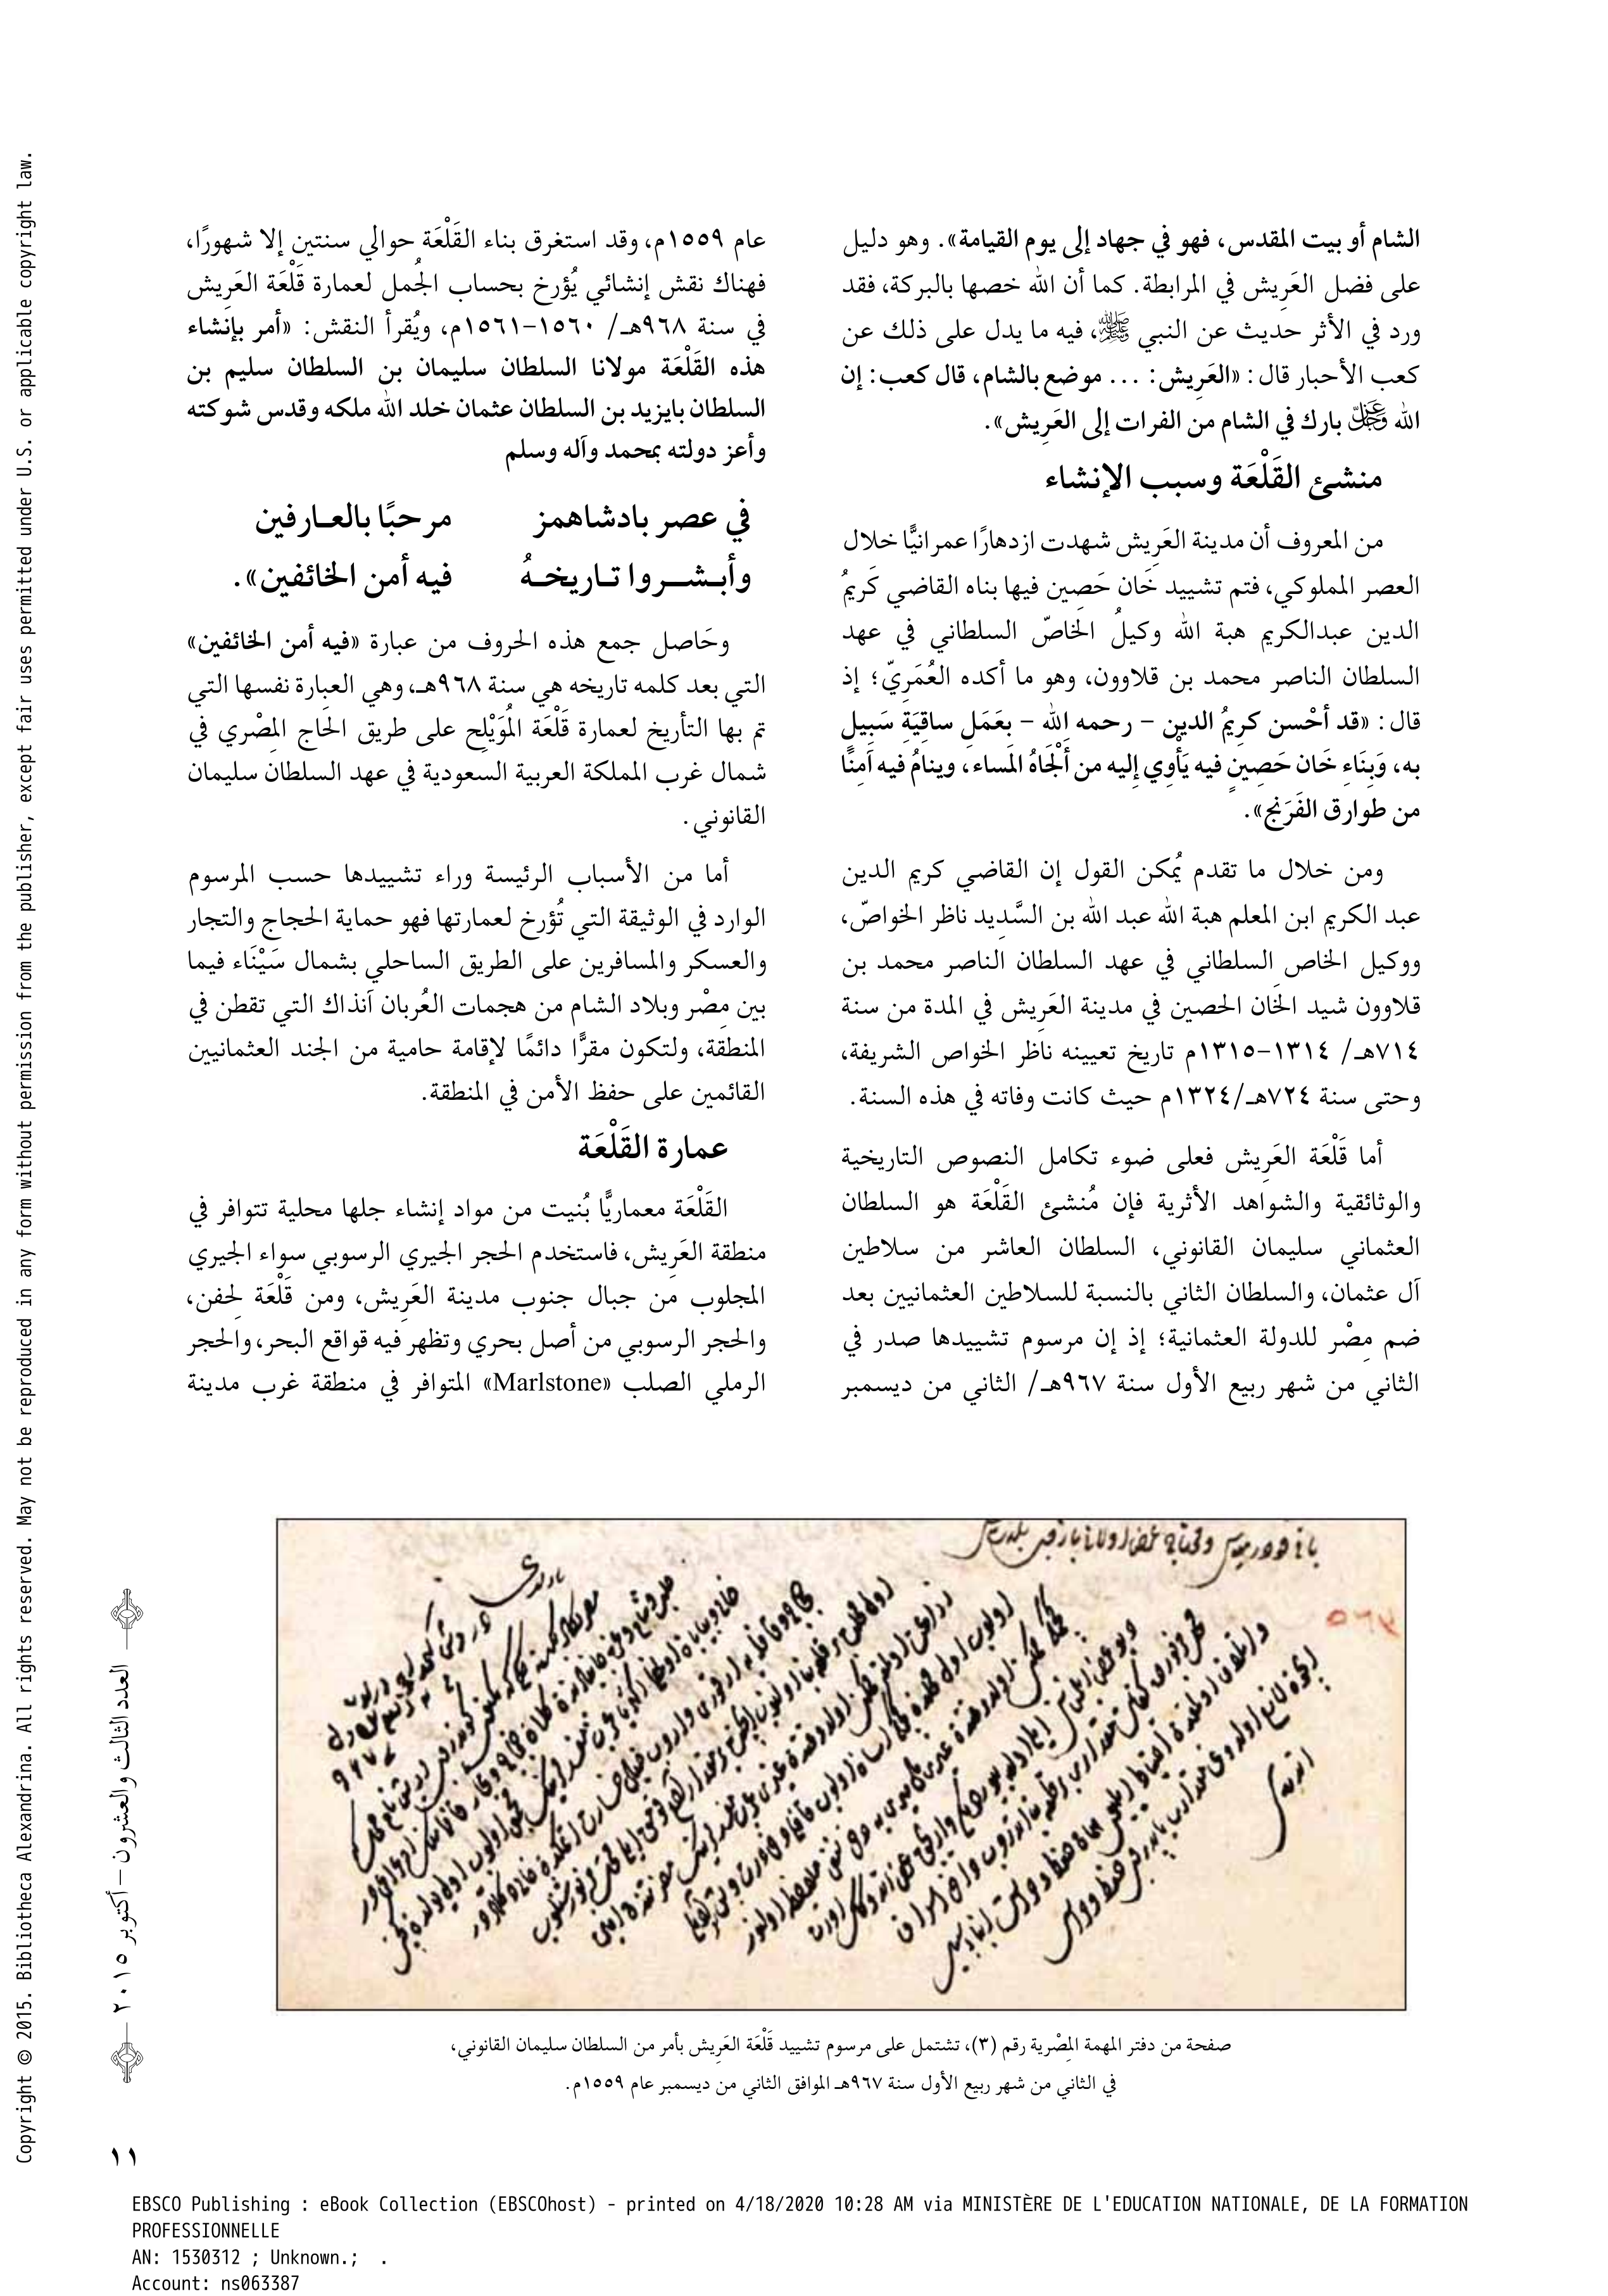 الشام أو بيت المقدس، فهو في جهاد إلى يوم القيامة». وهو دليل
على فضل العَرِيش في المرابطة. كما أن الله خصها بالبركة، فقد
ورد في الأثر حديث عن النبي ﷺ، فيه ما يدل على ذلك عن
كعب الأحبار قال: «العَرِيش: ... موضع بالشام، قال كعب: إن
الله عَزَّ وَجَلَّ بارك في الشام من الفرات إلى العَرِيش».
منشئ القَلْعَة وسبب الإنشاء
من المعروف أن مدينة العَرِيش شهدت ازدهارًا عمرانيًّا خلال
العصر المملوكي، فتم تشييد خَان حَصِين فيها بناه القاضي كَريمُ
الدين عبدالكريم هبة الله وكيلُ الخاصّ السلطاني في عهد
السلطان الناصر محمد بن قلاوون، وهو ما أكده العُمَرِيّ؛ إذ
قال: «قد أحْسن كرِيمُ الدين – رحمه الله – بعَمَلِ ساقِيَةِ سَبِيلٍ
به، وَبِنَاءِ خَان حَصِينٍ فيه يَأْوِي إليه من أَلْجَاهُ المَساء، وينامُ فيه آمِنًا
من طوارق الفَرَنج».
ومن خلال ما تقدم يُمكن القول إن القاضي كريم الدين
عبد الكريم ابن المعلم هبة الله عبد الله بن السَّدِيد ناظر الخواصّ،
ووكيل الخاص السلطاني في عهد السلطان الناصر محمد بن
قلاوون شيد الخَان الحصين في مدينة العَرِيش في المدة من سنة
٧١٤هـ/ ١٣١٤–١٣١٥م تاريخ تعيينه ناظر الخواص الشريفة،
وحتى سنة ٧٢٤هـ/١٣٢٤م حيث كانت وفاته في هذه السنة.
أما قَلْعَة العَرِيش فعلى ضوء تكامل النصوص التاريخية
والوثائقية والشواهد الأثرية فإن مُنشئ القَلْعَة هو السلطان
العثماني سليمان القانوني، السلطان العاشر من سلاطين
آل عثمان، والسلطان الثاني بالنسبة للسلاطين العثمانيين بعد
ضم مِصْر للدولة العثمانية؛ إذ إن مرسوم تشييدها صدر في
الثاني من شهر ربيع الأول سنة ٩٦٧هـ/ الثاني من ديسمبر
عام ١٥٥٩م، وقد استغرق بناء القَلْعَة حوالي سنتين إلا شهورًا،
فهناك نقش إنشائي يُؤرخ بحساب الجُمل لعمارة قَلْعَة العَرِيش
في سنة ٩٦٨هـ/ ١٥٦٠–١٥٦١م، ويُقرأ النقش: «أمر بإنشاء
هذه القَلْعَة مولانا السلطان سليمان بن السلطان سليم بن
السلطان بايزيد بن السلطان عثمان خلد الله ملكه وقدس شوكته
وأعز دولته بمحمد وآله وسلم
في عصر بادشاهمز مرحبًا بالعـارفين
وأبـشـــروا تـاريخـهُ فيه أمن الخائفين».
وحَاصل جمع هذه الحروف من عبارة «فيه أمن الخائفين»
التي بعد كلمه تاريخه هي سنة ٩٦٨هـ، وهي العبارة نفسها التي
تم بها التأريخ لعمارة قَلْعَة المُوَيْلِح على طريق الحَاج المِصْري في
شمال غرب المملكة العربية السعودية في عهد السلطان سليمان
القانوني.
أما من الأسباب الرئيسة وراء تشييدها حسب المرسوم
الوارد في الوثيقة التي تُؤرخ لعمارتها فهو حماية الحجاج والتجار
والعسكر والمسافرين على الطريق الساحلي بشمال سَيْنَاء فيما
بين مِصْر وبلاد الشام من هجمات العُربان آنذاك التي تقطن في
المنطقة، ولتكون مقرًّا دائمًا لإقامة حامية من الجند العثمانيين
القائمين على حفظ الأمن في المنطقة.
عمارة القَلْعَة
القَلْعَة معماريًّا بُنيت من مواد إنشاء جلها محلية تتوافر في
منطقة العَرِيش، فاستخدم الحجر الجيري الرسوبي سواء الجيري
المجلوب من جبال جنوب مدينة العَرِيش، ومن قَلْعَة لحفن،
والحجر الرسوبي من أصل بحري وتظهر فيه قواقع البحر، والحجر
الرملي الصلب «Marlstone» المتوافر في منطقة غرب مدينة
صفحة من دفتر المهمة المِصْرية رقم (٣)، تشتمل على مرسوم تشييد قَلْعَة العَرِيش بأمر من السلطان سليمان القانوني،
في الثاني من شهر ربيع الأول سنة ٩٦٧هـ الموافق الثاني من ديسمبر عام ١٥٥٩م.
العدد الثالث والعشرون – أكتوبر ٢٠١٥
١١
Copyright © 2015. Bibliotheca Alexandrina. All rights reserved. May not be reproduced in any form without permission from the publisher, except fair uses permitted under U.S. or applicable copyright law.
EBSCO Publishing : eBook Collection (EBSCOhost) - printed on 4/18/2020 10:28 AM via MINISTÈRE DE L'EDUCATION NATIONALE, DE LA FORMATION
PROFESSIONNELLE
AN: 1530312 ; Unknown.; .
Account: ns063387